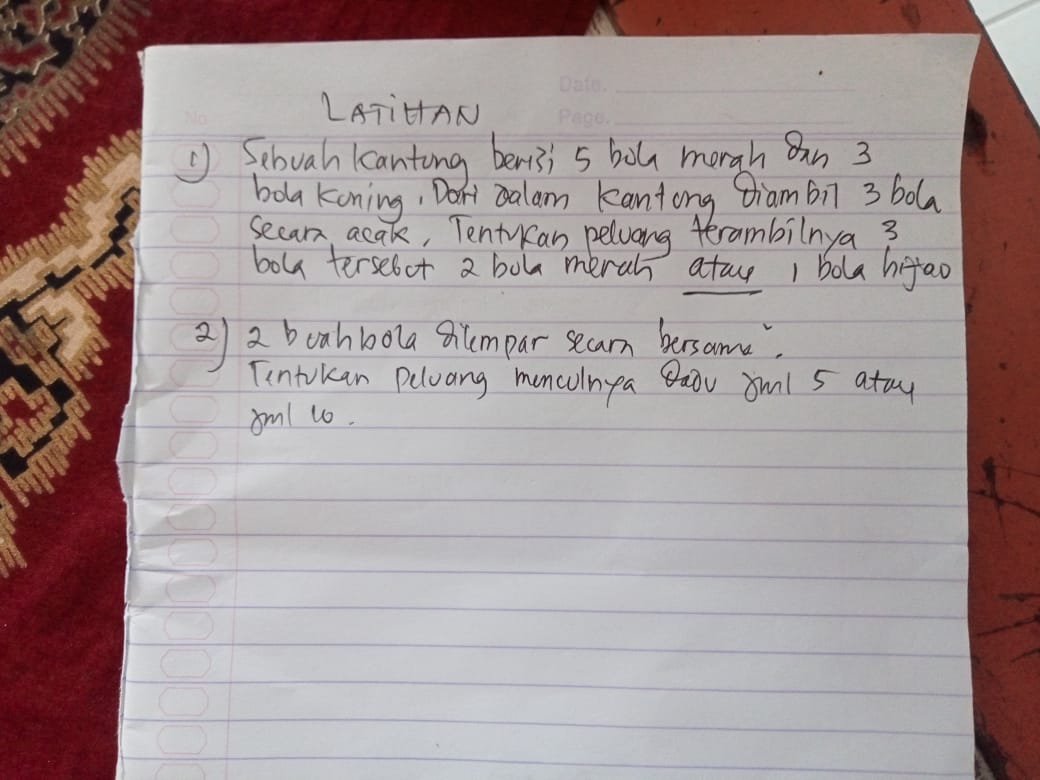 No
Date.
Page.
LATIHAN
1) Sebuah kantung berisi 5 bola merah dan 3
bola kuning. Dari dalam kantong diambil 3 bola
secara acak, Tentukan peluang terambilnya 3
bola tersebut 2 bola merah atau 1 bola hijao
2) 2 buah bola dilempar secara bersama".
Tentukan peluang menculnya dadu jml 5 atau
jml 10.